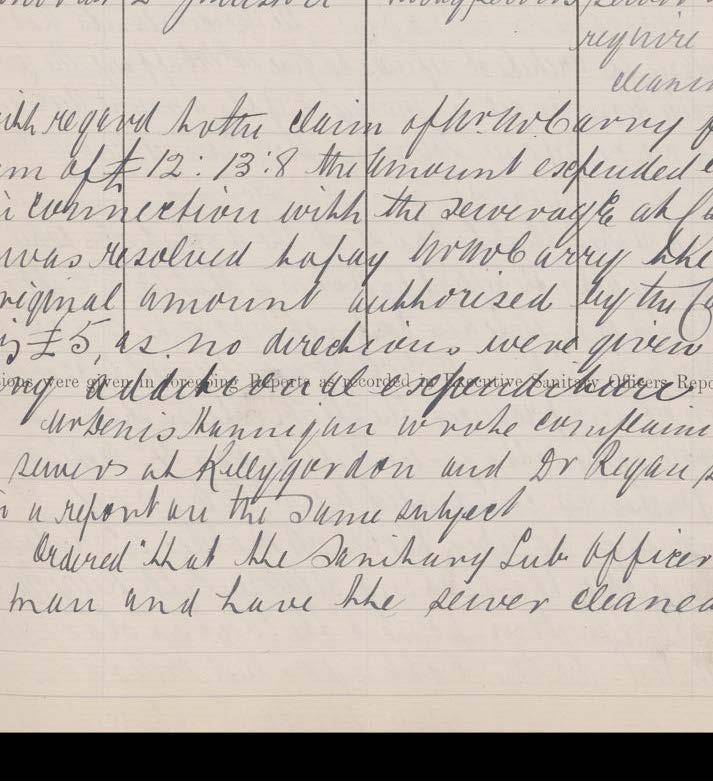 require
cleani
with regard to the claim of Mr. McCarry f
m of £12:13:8 the amount expended
in connection with the sewerage at
was resolved to pay Mr McCarry the
riginal amount authorised by the
£5, as no directions were given
ions were given in foregoing Reports as recorded in Executive Sanitary Officers Repo
ny additional expenditure
Mr Denis Hannigan wrote complain
sewers at Killygordon and Dr Regan s
in a report on the same subject
Ordered "that the Sanitary Sub Officer
man and have the sewer cleaned